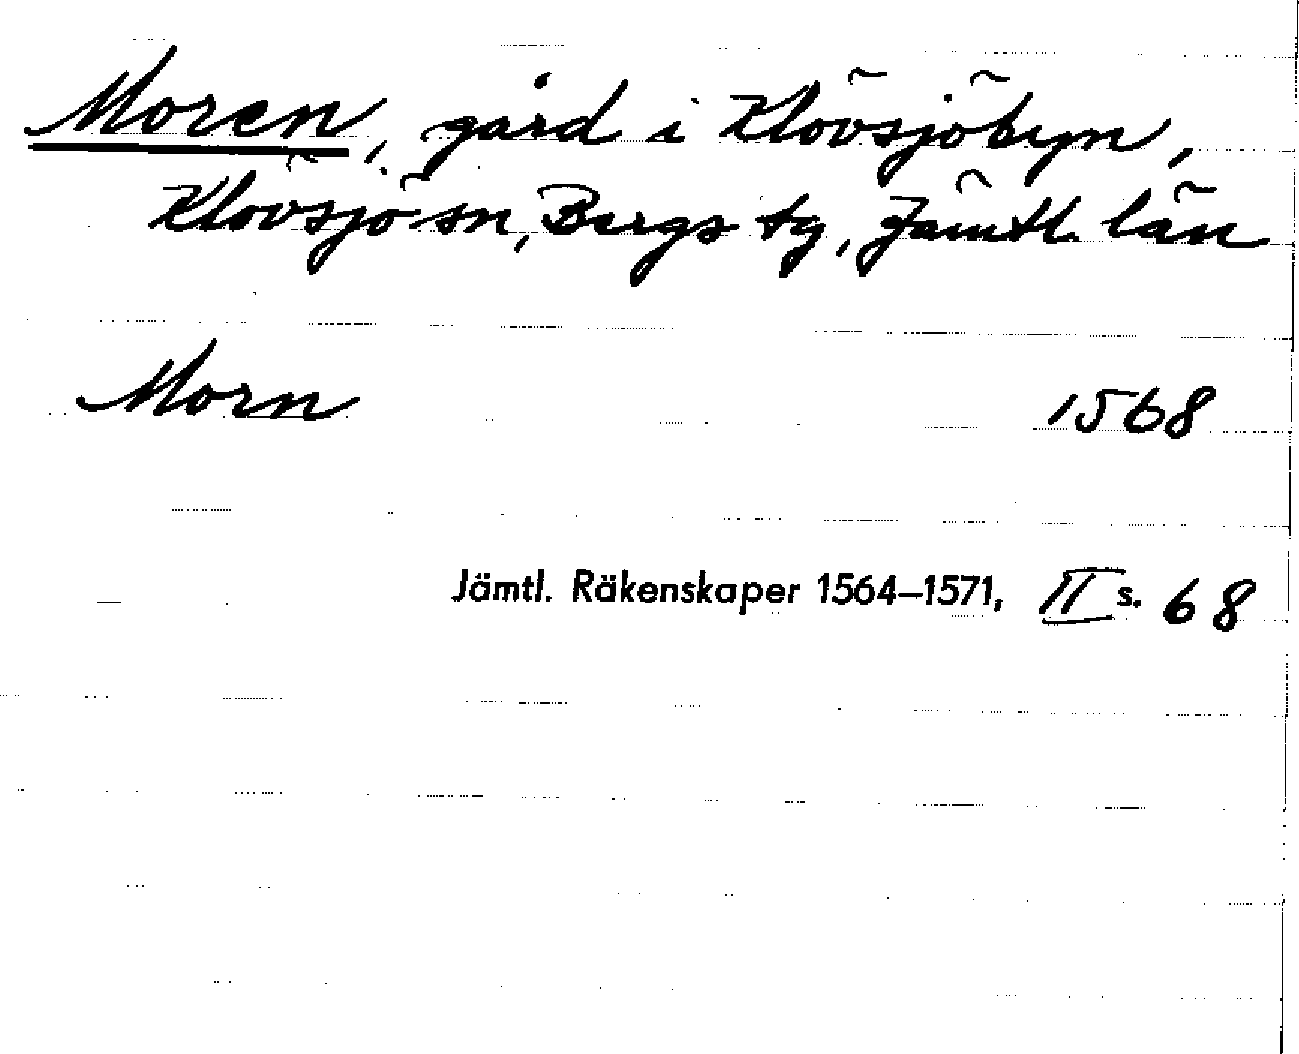 Moren, gård i Klövsjöbyn,
Klövsjö sn, Bergs tg, Jämtl. län
Morn 1568
Jämtl. Räkenskaper 1564–1571, II s. 68